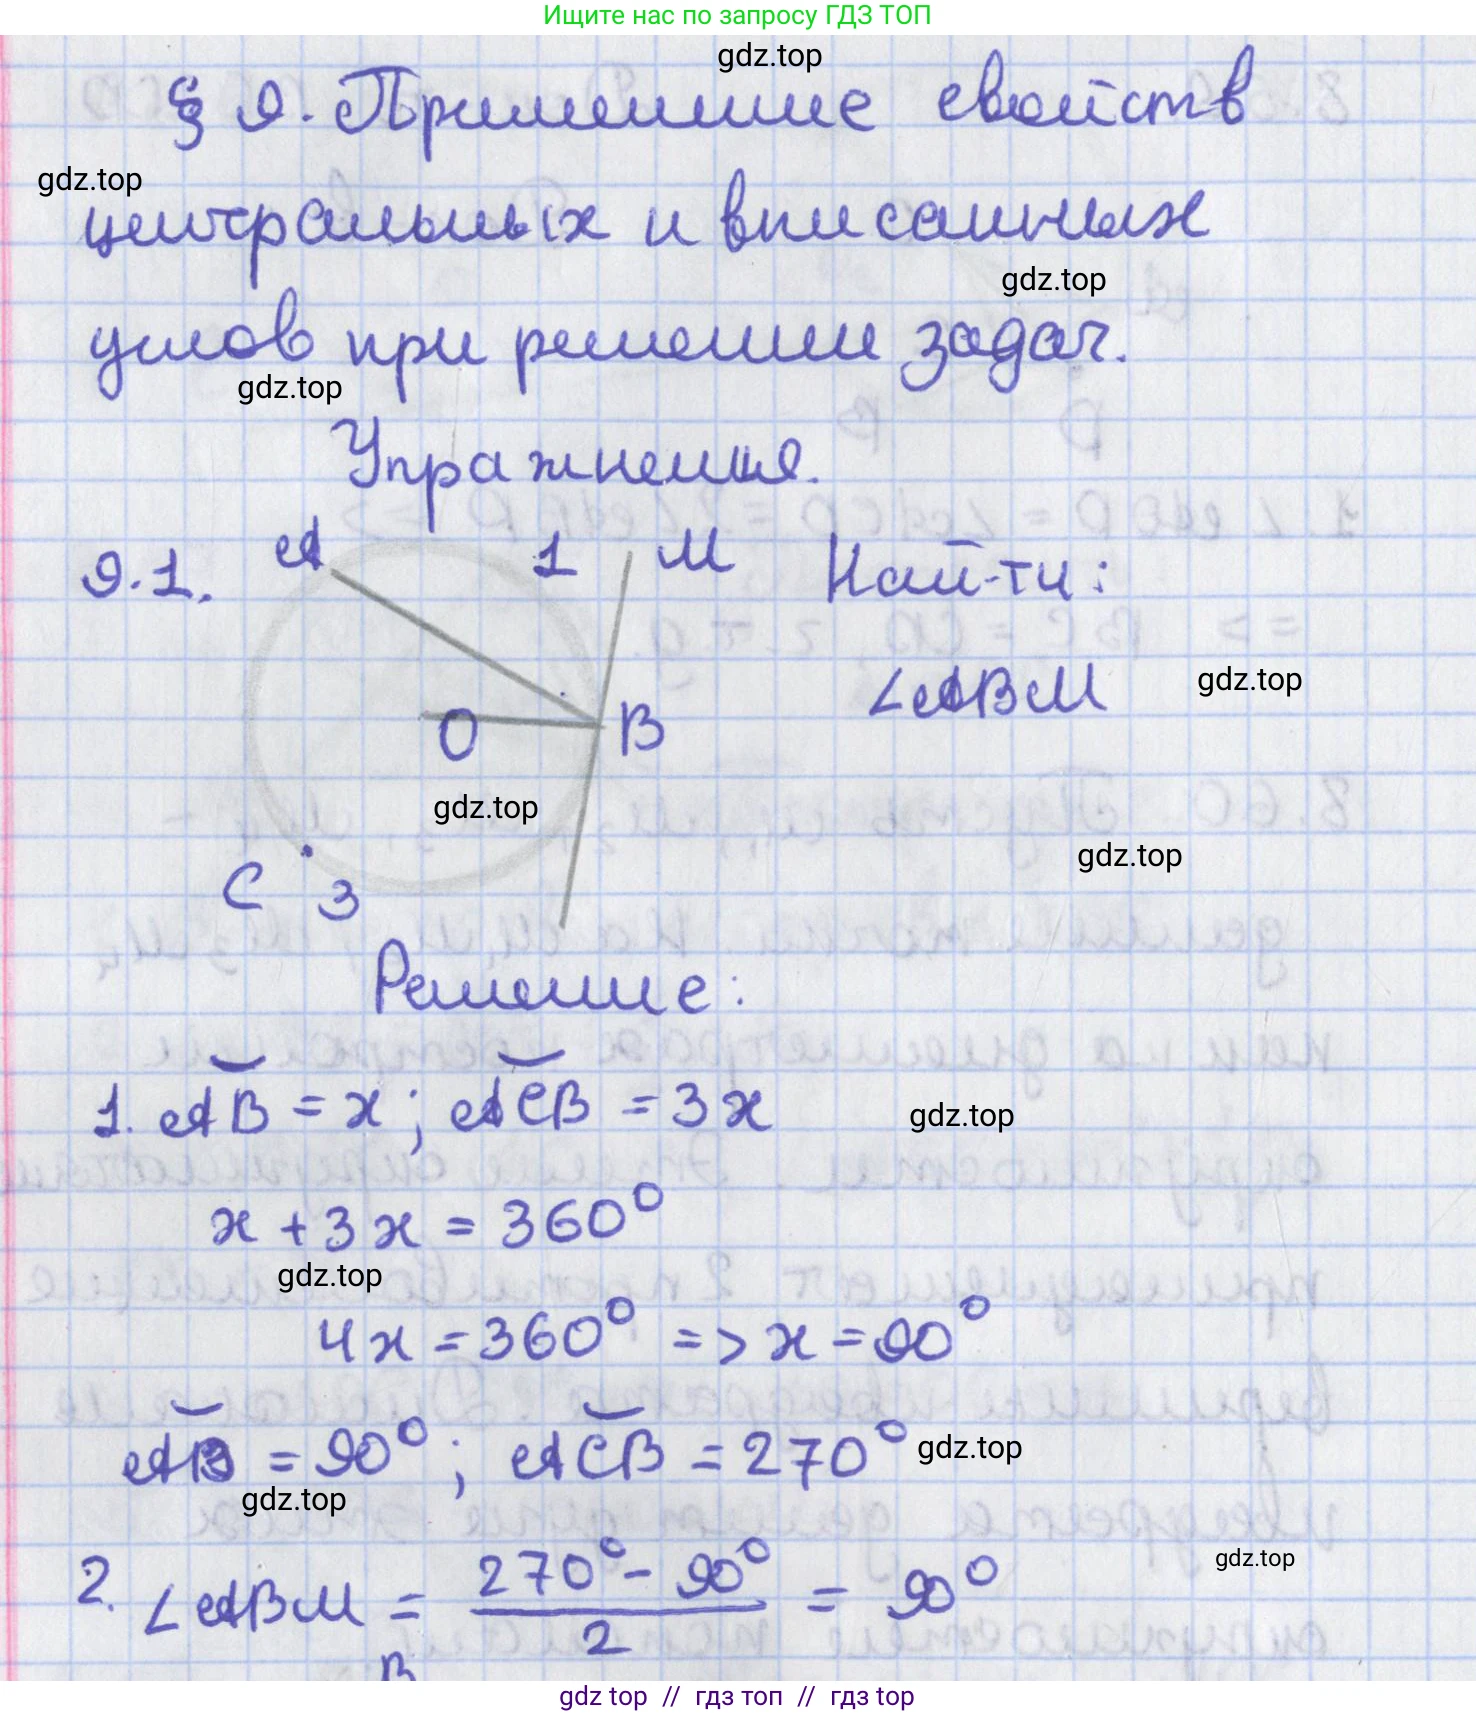 Ищите нас по запросу ГДЗ ТОП
gdz.top
§ 9. Применение свойств
gdz.top
центральных и вписанных
gdz.top
углов при решении задач.
gdz.top
Упражнения.
9.1. A 1 M Найти:
∠ABM gdz.top
O B
gdz.top
gdz.top
C 3
Решение:
1. ◡AB = x; ◡ACB = 3x gdz.top
x + 3x = 360°
gdz.top
4x = 360° => x = 90°
◡AB = 90°; ◡ACB = 270° gdz.top
gdz.top
gdz.top
2. ∠ABM = (270° - 90°)/2 = 90°
B
gdz top // гдз топ // гдз top